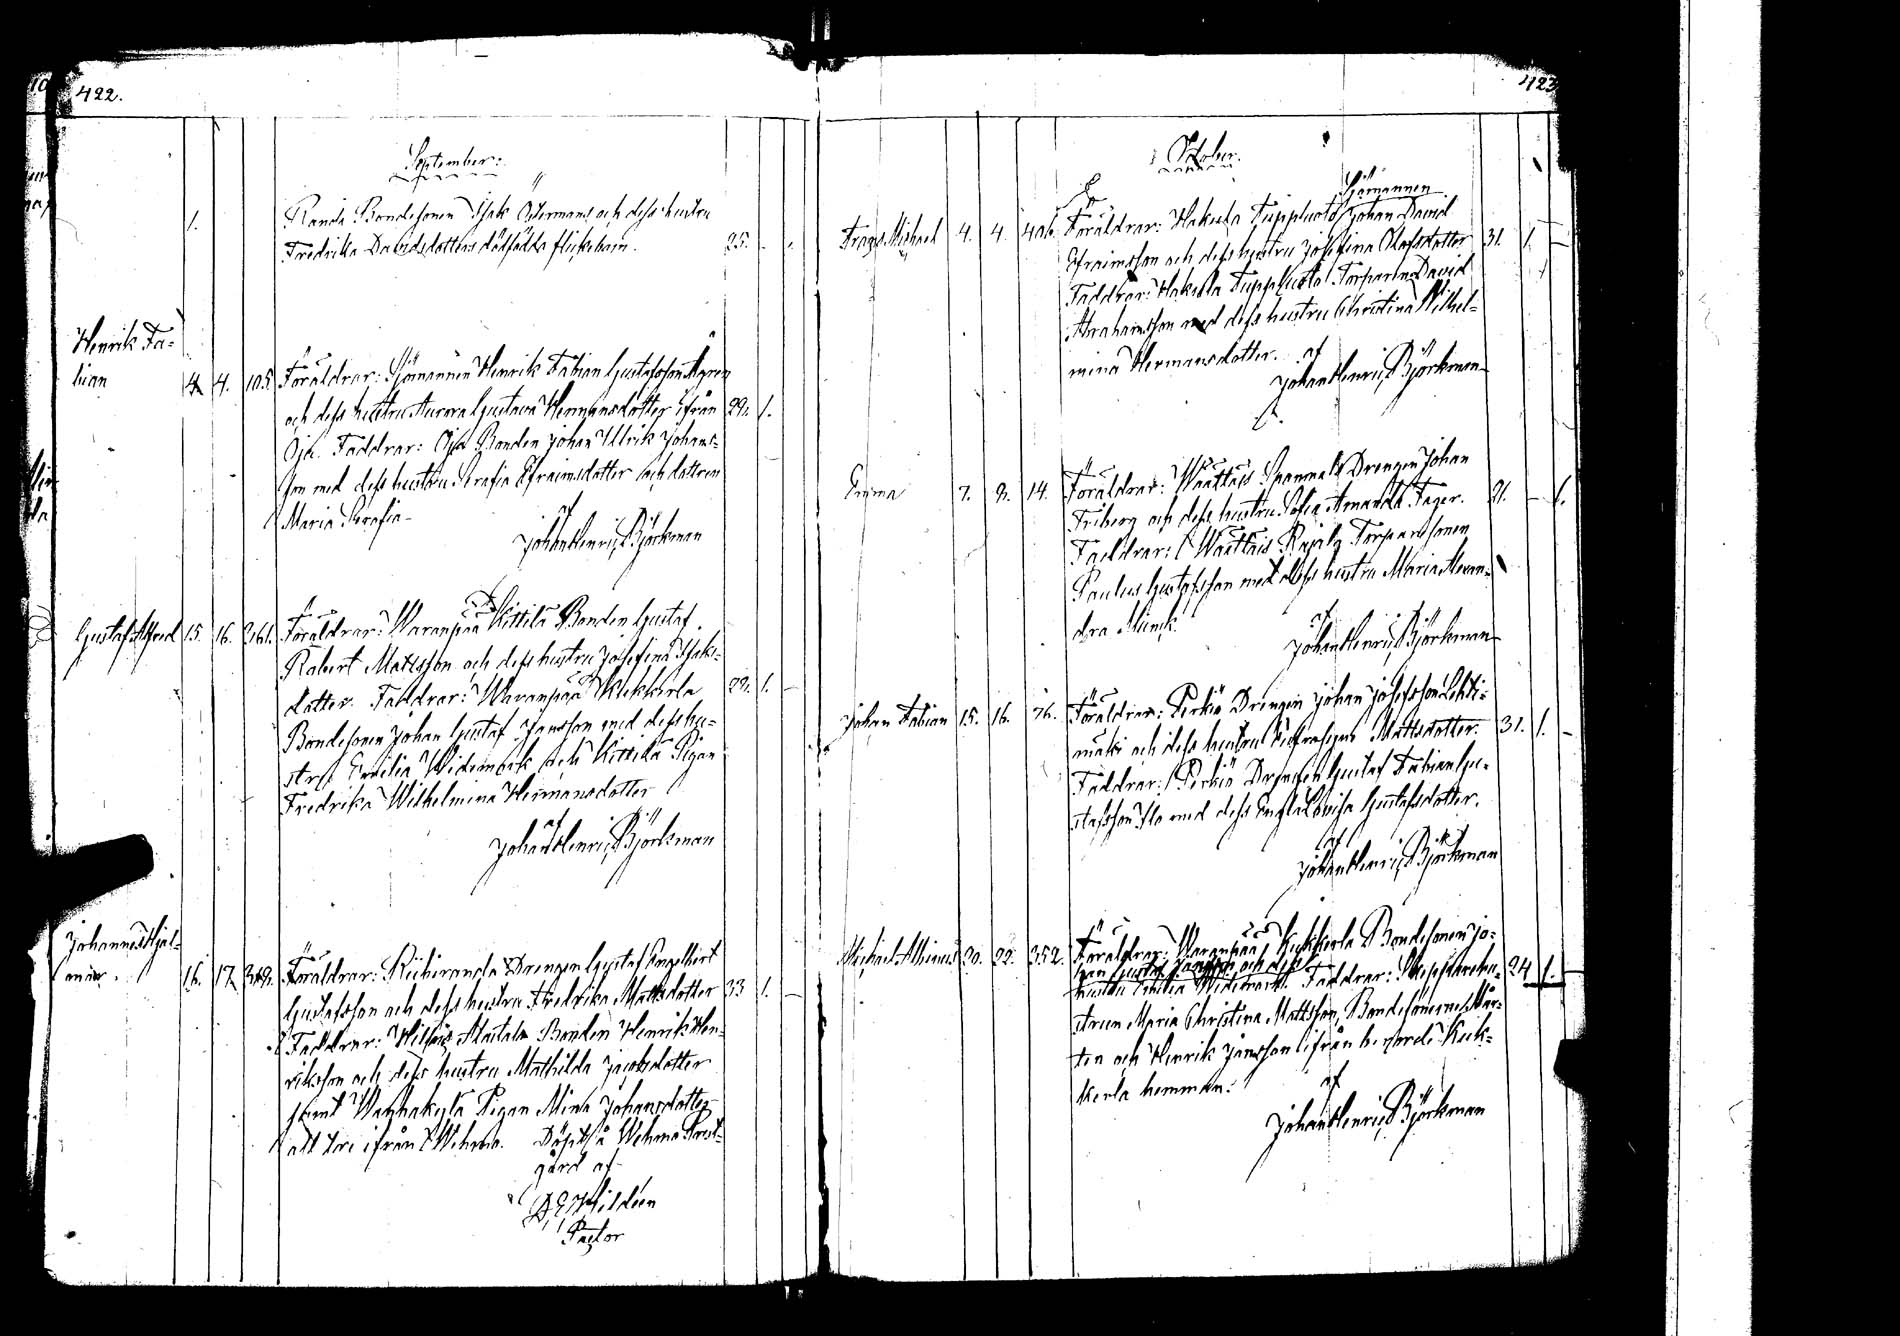 422.
September:
1. Randa Bondesonen Isak Östermans och dess hustru
Fredrika Davidsdotters dödfödda flickebarn. 25.
Henrik Fa-
bian 4. 4. 105. Föräldrar: Sjömannen Henrik Fabian Gustafsson Ågren
och dess hustru Aurora Gustava Hermansdotter ifrån 29. 1.
Öja. Faddrar: Öja Bonden Johan Ulrik Johans-
son med dess hustru Serafia Efraimsdotter och dottren
Maria Serafia.
af
Johan Henric Björkman
Gustaf Alfred 15. 16. 361. Föräldrar: Waranpää Kittilä Bonden Gustaf
Robert Mattsson och dess hustru Josefina Isaks-
dotter. Faddrar: Waranpää Kukkerla 29. 1.
Bondesonen Johan Gustaf Jansson med dess hu-
stru Emilia Widemark och Kittilä Pigan
Fredrika Wilhelmina Hermansdotter
af
Johan Henric Björkman
Johannes Hjal-
mar. 16. 17. Föräldrar: Drengen Gustaf Engelbert
Gustafsson och dess hustru Fredrika Mattsdotter 33 1.
Faddrar: Alatalo Bonden Henrik Hen-
riksson och dess hustru Mathilda Jacobsdotter
samt Wanhakylä Pigan Mina Johansdotter
all tre ifrån Wehmo. Döpt å Wehmo Prest-
gård af
Pastor
423
October.
Sjömannen
Frans Michael 4. 4. Föräldrar: Hakula Tuppluoto Johan David
Efraimsson och dess hustru Josefina Olofsdotter 31. 1.
Faddrar: Hakula Tuppluoto Torparen David
Abrahamsson med dess hustru Christina Wilhel-
mina Hermansdotter. af
Johan Henric Björkman
Emma 7. 9. 14. Föräldrar: Waattais Drengen Johan
Friberg och dess hustru Sofia Amanda Fager. 21. 1.
Faddrar: Waattais Rajala Torparsonen
Paulus Gustafsson med dess hustru Maria Alexan-
dra Munck.
af
Johan Henric Björkman
Johan Fabian 15. 16. 76. Föräldrar: Perkiö Drengen Johan Josefsson Lehti-
mäki och dess hustru Eufrosyne Mattsdotter. 31. 1.
Faddrar: Perkiö Drengen Gustaf Fabian Gu-
stafsson Ilo med dess Engla Lovisa Gustafsdotter.
af
Johan Henric Björkman
Michael Albinus 20. 22. 352. Föräldrar: Waranpää Kukkerla Bondesonen Jo-
han Gustaf Jansson och dess
hustru Emilia Widemark. Faddrar: Skepparehu- 24 1.
strun Maria Christina Mattsson, Bondesönerne Mår-
ten och Henrik Jansson ifrån berörde Kuk-
kerla hemman.
af
Johan Henric Björkman